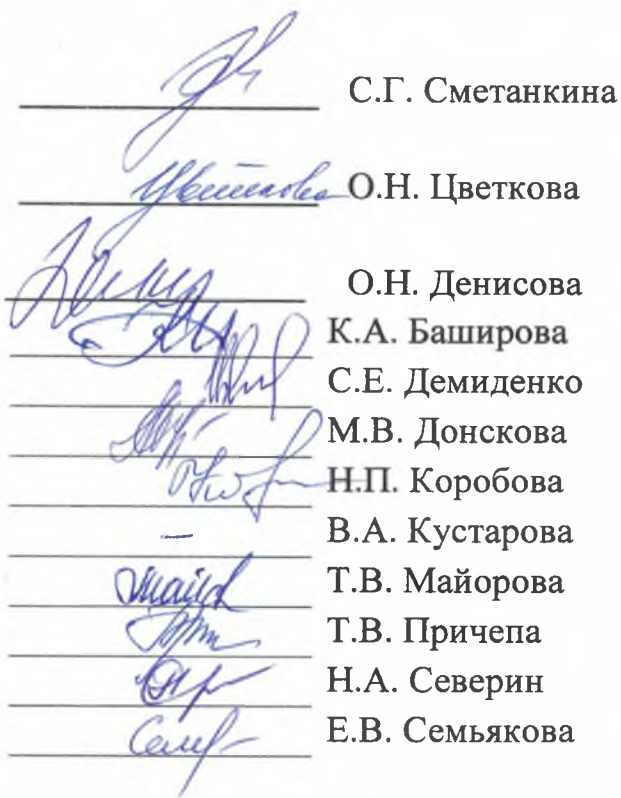 С.Г. Сметанкина
Цветкова О.Н. Цветкова
О.Н. Денисова
К.А. Баширова
С.Е. Демиденко
М.В. Донскова
Н.П. Коробова
– В.А. Кустарова
Т.В. Майорова
Т.В. Причепа
Н.А. Северин
Е.В. Семьякова